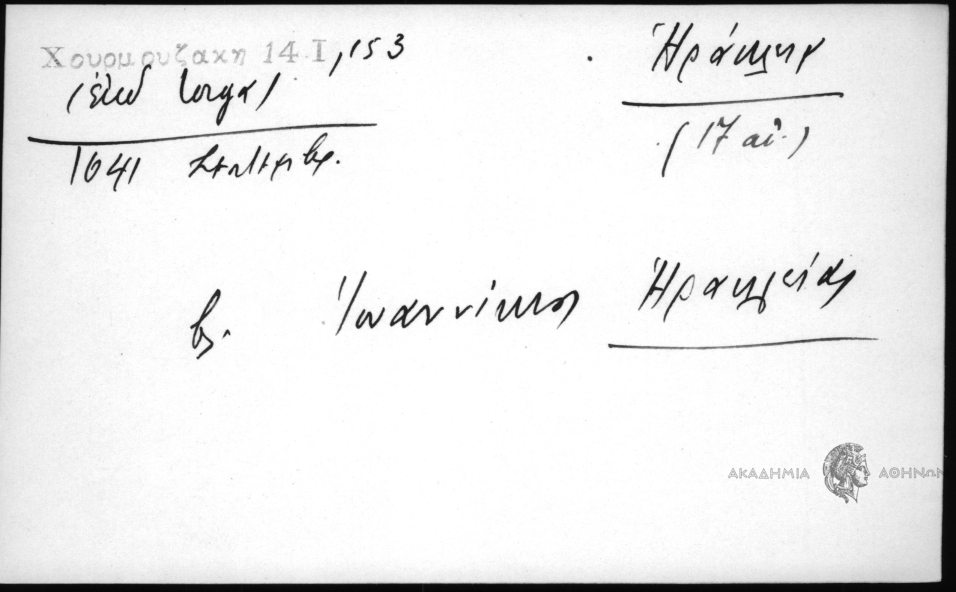 Χουρμουζακη 14 Ι, 153
(ἐκδ Ιοργα)
Ἡράκλεια
(17 αἰ.)
1641 Σεπτεμβρ.
βλ. Ἰωαννίκιος Ἡρακλείας
ΑΚΑΔΗΜΙΑ ΑΘΗΝΩΝ